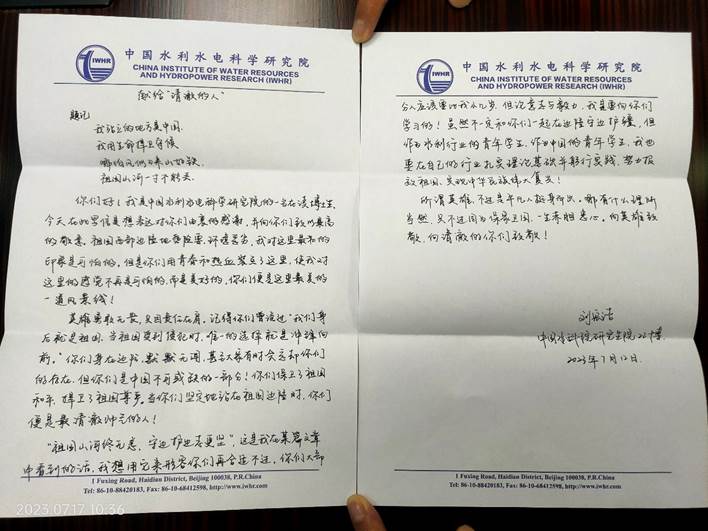 IWHR
中国水利水电科学研究院
CHINA INSTITUTE OF WATER RESOURCES
AND HYDROPOWER RESEARCH (IWHR)
献给“清澈的人”
题记
我站立的地方是中国
我用生命捍卫守候
哪怕风似刀来山如铁
祖国山河一寸不能丢
你们好！我是中国水利水电科学研究院的一名在读博士生，
今天在此写信是想表达对你们由衷的感谢，并向你们致以最高
的敬意。祖国西部边陲地势险要、环境恶劣，我对这里最初的
印象是可怕的。但是你们用青春和热血筑立了这里，使我对
这里的感觉不再是可怕的，而是美好的，你们便是这里最美的
一道风景线！
英雄勇敢无畏，只因责任在肩。记得你们曾说过“我们身
后就是祖国，当祖国受到侵犯时，唯一的选择就是冲锋向
前。”你们身在边防，默默无闻，甚至大荐有时会忘却你们
的存在，但你们是中国不可或缺的一部分！你们保卫了祖国
和平，捍卫了祖国尊严。当你们坚定地站在祖国边陲时，你们
便是最清澈帅气的人！
“祖国山河终无恙，守边护边志更坚”，这是我在某篇文章
中看到的话，我想用它来形容你们再合适不过。你们大部
1 Fuxing Road, Haidian District, Beijing 100038, P.R.China
Tel: 86-10-88420183, Fax: 86-10-68412598, http://www.iwhr.com
2023.07.17 10:36
IWHR
中国水利水电科学研究院
CHINA INSTITUTE OF WATER RESOURCES
AND HYDROPOWER RESEARCH (IWHR)
分人应该要比我小几岁，但论意志与毅力，我是要向你们
学习的！虽然不一定和你们一起在边陲守边护疆，但
作为水利行业的青年学生，作为中国的青年学生，我也
要在自己的行业扎实理论基础并躬行实践，努力报
效祖国，实现中华民族伟大复兴！
所谓英雄，不过是平凡人挺身而出。哪有什么理所
当然，只不过因为保家卫国，一生赤胆忠心。向英雄致
敬，向清澈的你们致敬！
中国水科院研究生院22博
2023年7月12日
1 Fuxing Road, Haidian District, Beijing 100038, P.R.China
Tel: 86-10-88420183, Fax: 86-10-68412598, http://www.iwhr.com